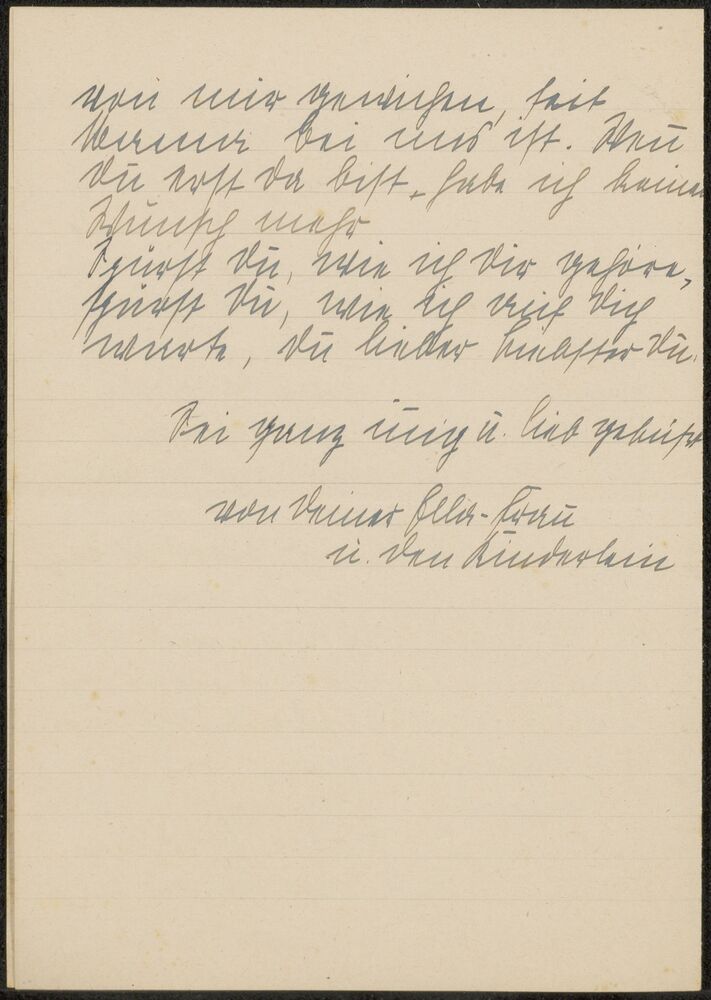 von mir gewichen, seit
Werner bei uns ist. Wenn
Du erst da bist, habe ich keinen
Wunsch mehr
Spürst Du, wie ich Dir gehöre,
spürst Du, wie ich auf Dich
warte, Du lieber Liebster Du.
Sei ganz innig u. lieb geküßt
von Deiner Ella-Frau
u. den Kinderlein